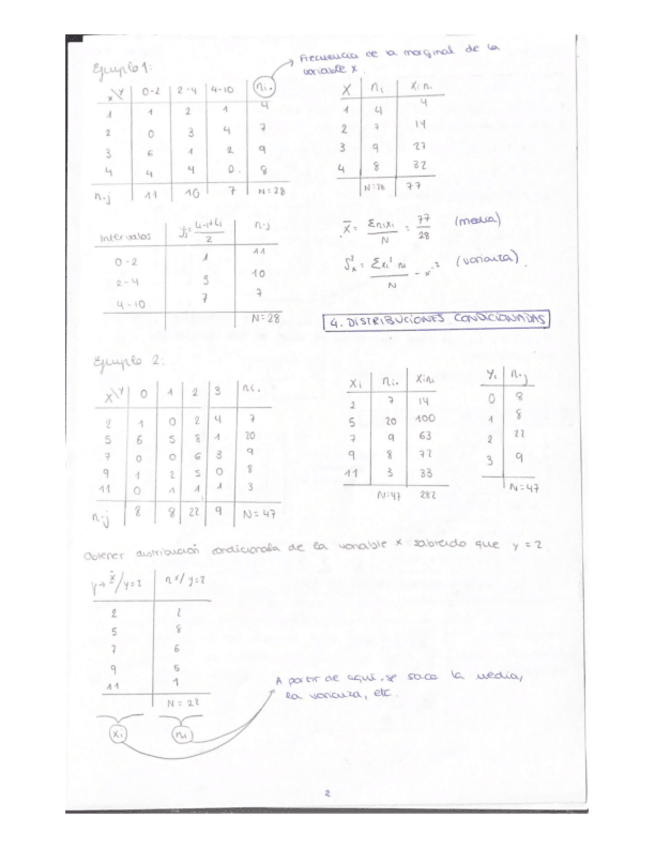 Ejemplo 1:
Frecuencia de la marginal de la
variable x.
x\y 0-2 2-4 4-10 ni.
1 1 2 1 4
2 0 3 4 7
3 6 1 2 9
4 4 4 0 8
n.j 11 10 7 N=28
X ni Xi ni
1 4 4
2 7 14
3 9 27
4 8 32
N=28 77
Intervalos Li-1+Li / 2 n.j
0-2 1 11
2-4 3 10
4-10 7 7
N=28
x̄ = Σnixi / N = 77/28 (media)
S²x = Σxi² ni / N - x̄² (varianza)
4. DISTRIBUCIONES CONDICIONADAS
Ejemplo 2:
X\Y 0 1 2 3 ni.
2 1 0 2 4 7
5 6 5 8 1 20
7 0 0 6 3 9
9 1 2 5 0 8
11 0 1 1 1 3
n.j 8 8 22 9 N=47
Xi ni. Xini
2 7 14
5 20 100
7 9 63
9 8 72
11 3 33
N=47 282
Yi n.j
0 8
1 8
2 22
3 9
N=47
Obtener distribución condicionada de la variable x sabiendo que y=2
x/y=2 n x/y=2
2 2
5 8
7 6
9 5
11 1
N=22
xi ni
A partir de aquí, se saca la media,
la varianza, etc.
2